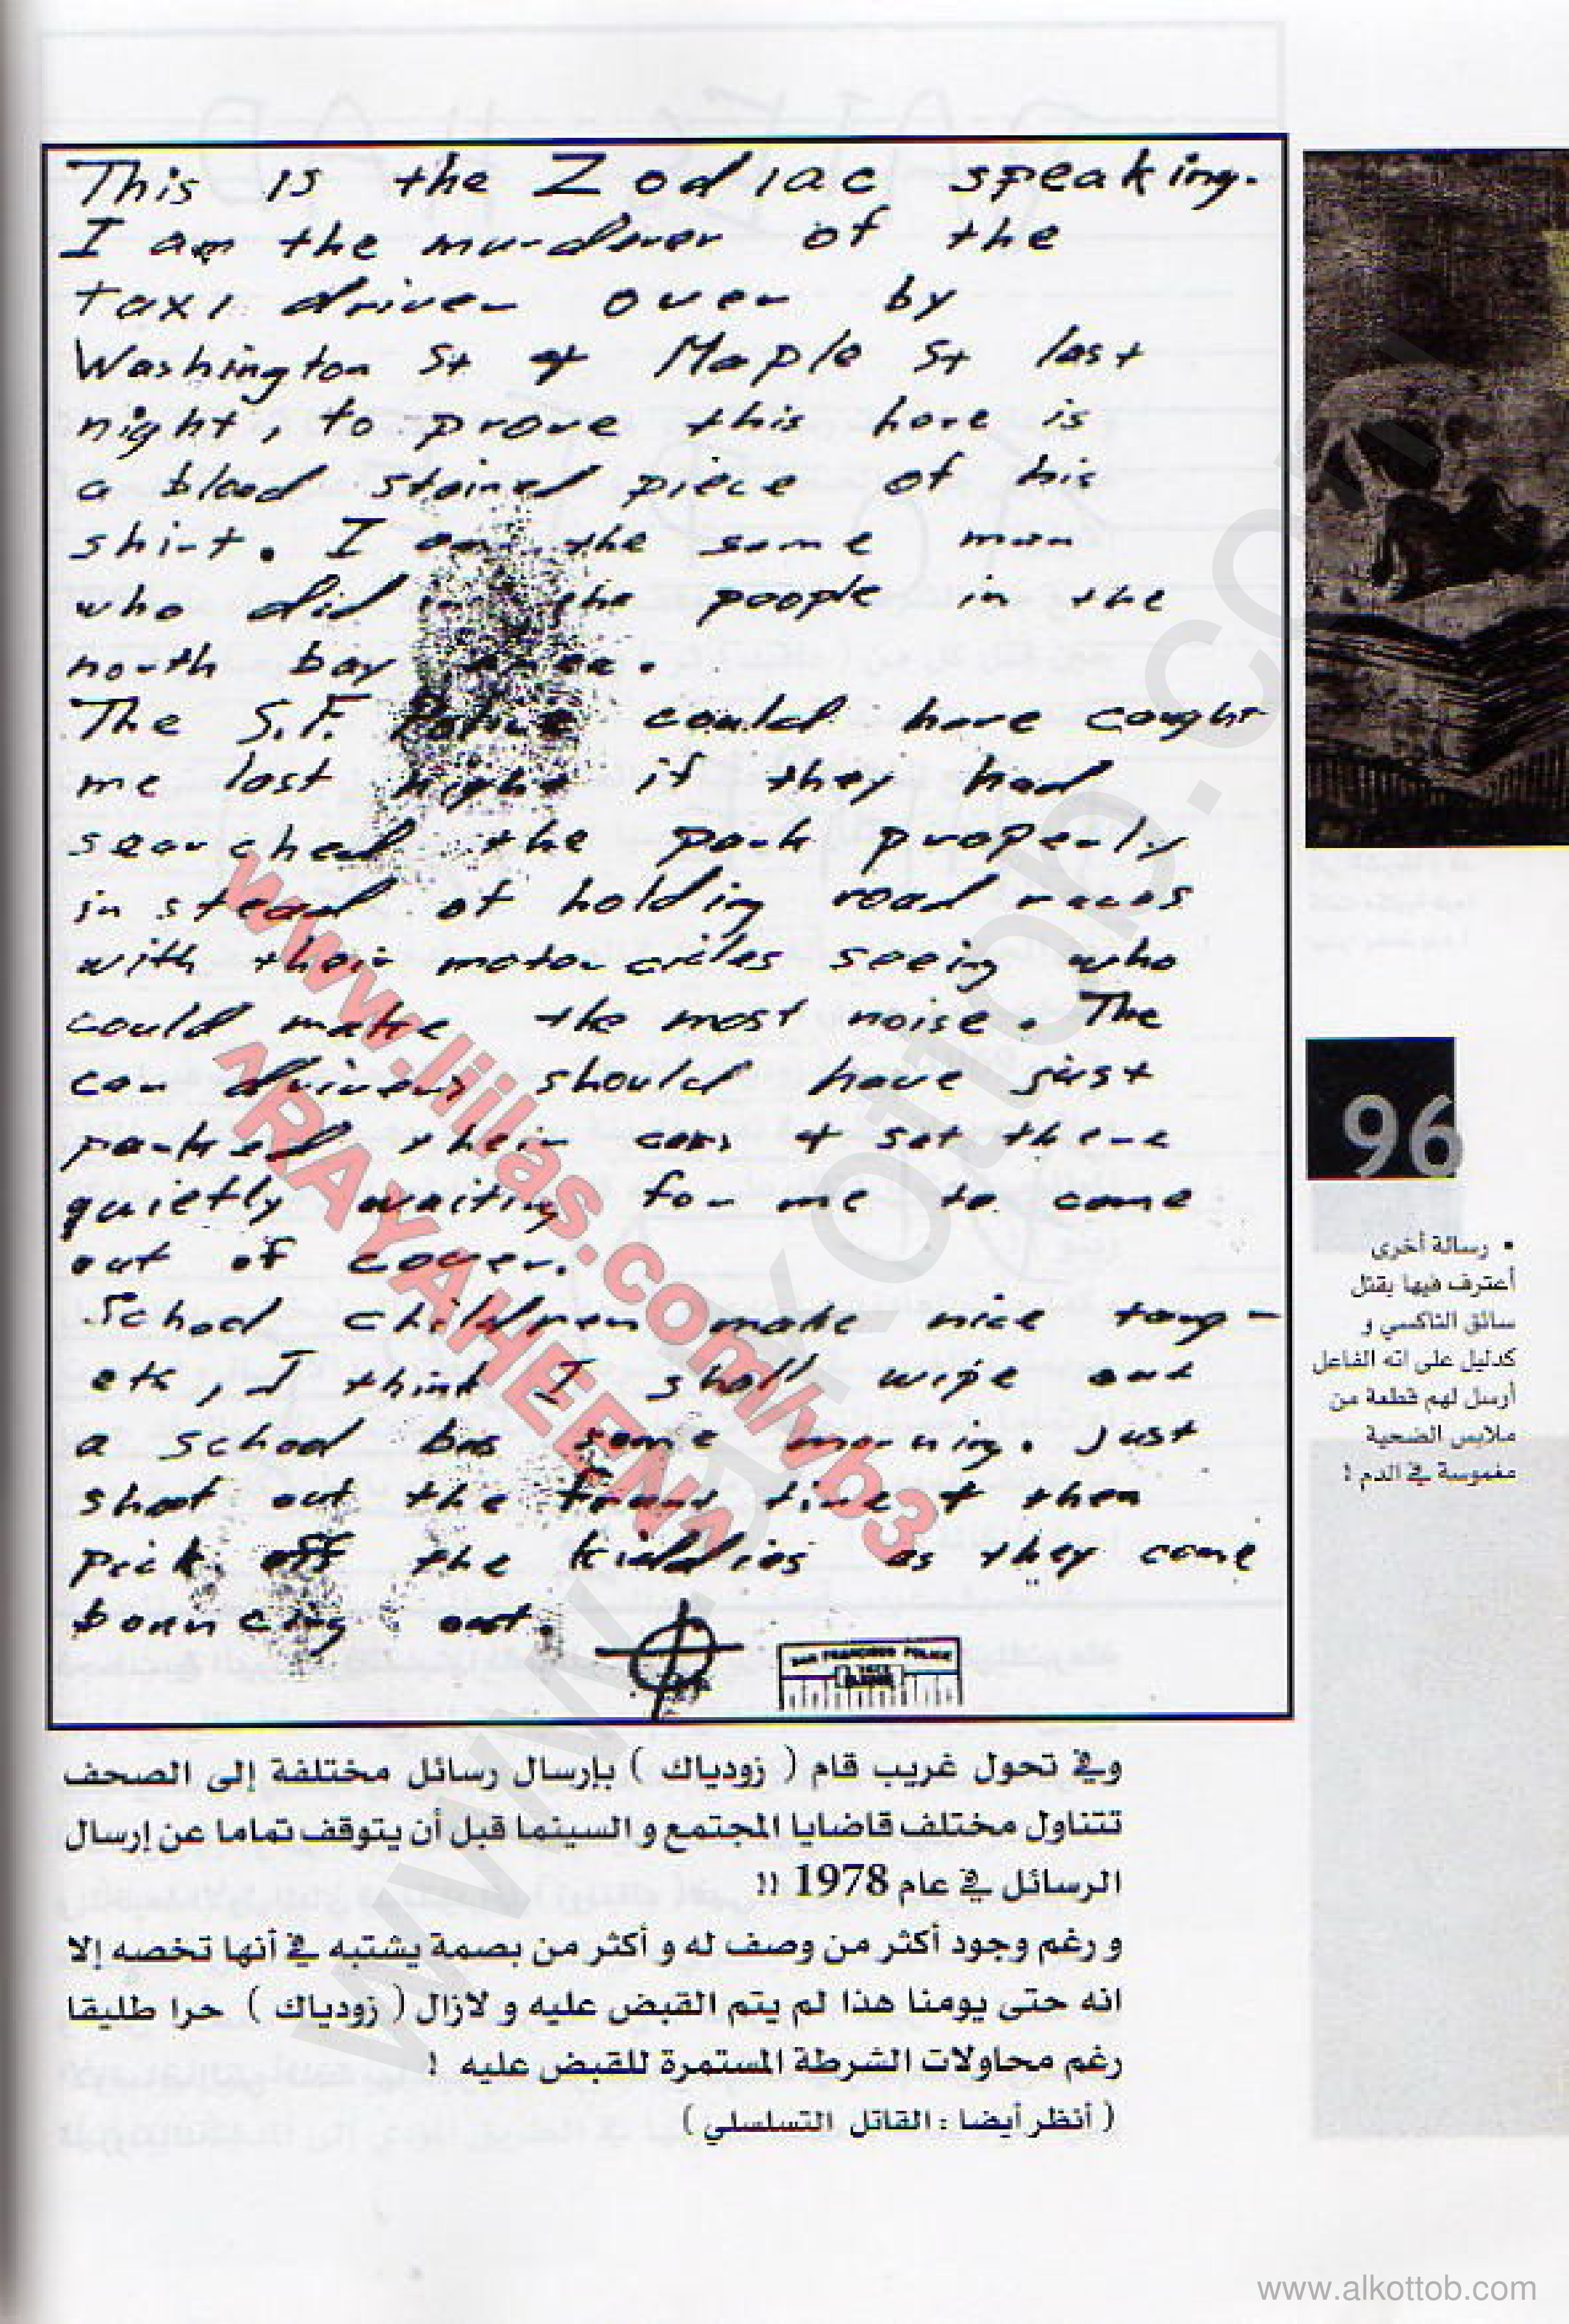 This is the Zodiac speaking.
I am the murderer of the
taxi driver over by
Washington St & Maple St last
night, to prove this here is
a blood stained piece of his
shirt. I am the same man
who did in the people in the
north bay area.
The S.F. Police could have caught
me last night if they had
searched the park properly
instead of holding road races
with their motorcicles seeing who
could make the most noise. The
car drivers should have just
parked their cars & sat there
quietly waiting for me to come
out of cover.
School children make nice targ-
ets, I think I shall wipe out
a school bus some morning. Just
shoot out the front tire & then
pick off the kiddies as they come
bouncing out.
SAN FRANCISCO POLICE
www.liilas.com/vb3
^RAYAHEEN^
96
• رسالة أخرى
أعترف فيها بقتل
سائق التاكسي و
كدليل على انه الفاعل
أرسل لهم قطعة من
ملابس الضحية
مغموسة في الدم !
وفي تحول غريب قام ( زودياك ) بإرسال رسائل مختلفة إلى الصحف
تتناول مختلف قاضايا المجتمع و السينما قبل أن يتوقف تماما عن إرسال
الرسائل في عام 1978 !!
و رغم وجود أكثر من وصف له و أكثر من بصمة يشتبه في أنها تخصه إلا
انه حتى يومنا هذا لم يتم القبض عليه و لازال ( زودياك ) حرا طليقا
رغم محاولات الشرطة المستمرة للقبض عليه !
( أنظر أيضا : القاتل التسلسلي )
www.alkottob.com